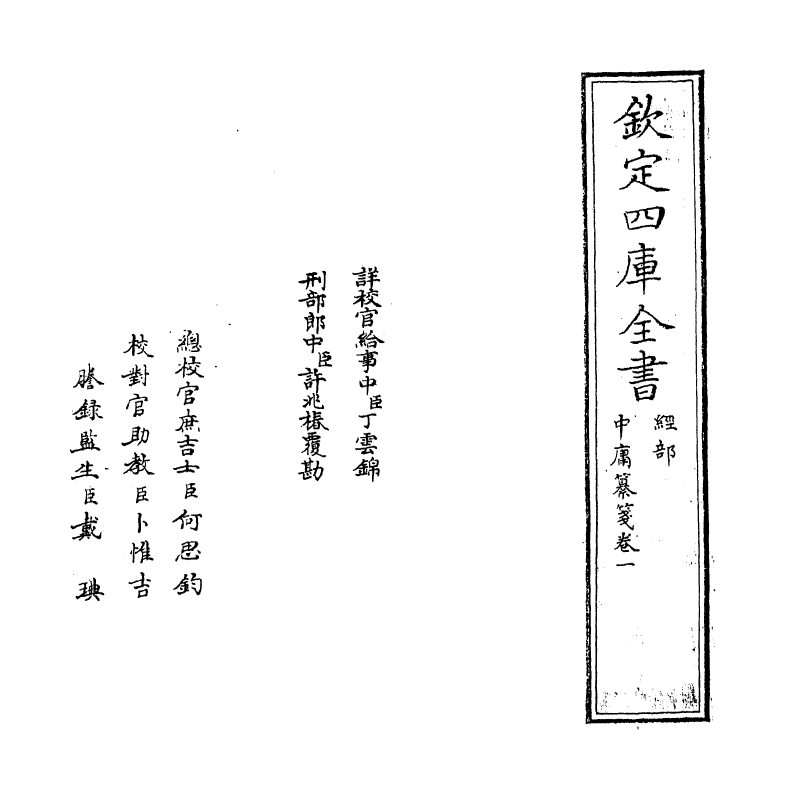 欽定四庫全書
經部
中庸纂箋卷一
詳校官給事中臣丁雲錦
刑部郎中臣許兆椿覆勘
總校官庶吉士臣何思鈞
校對官助教臣卜惟吉
謄録監生臣戴㻉